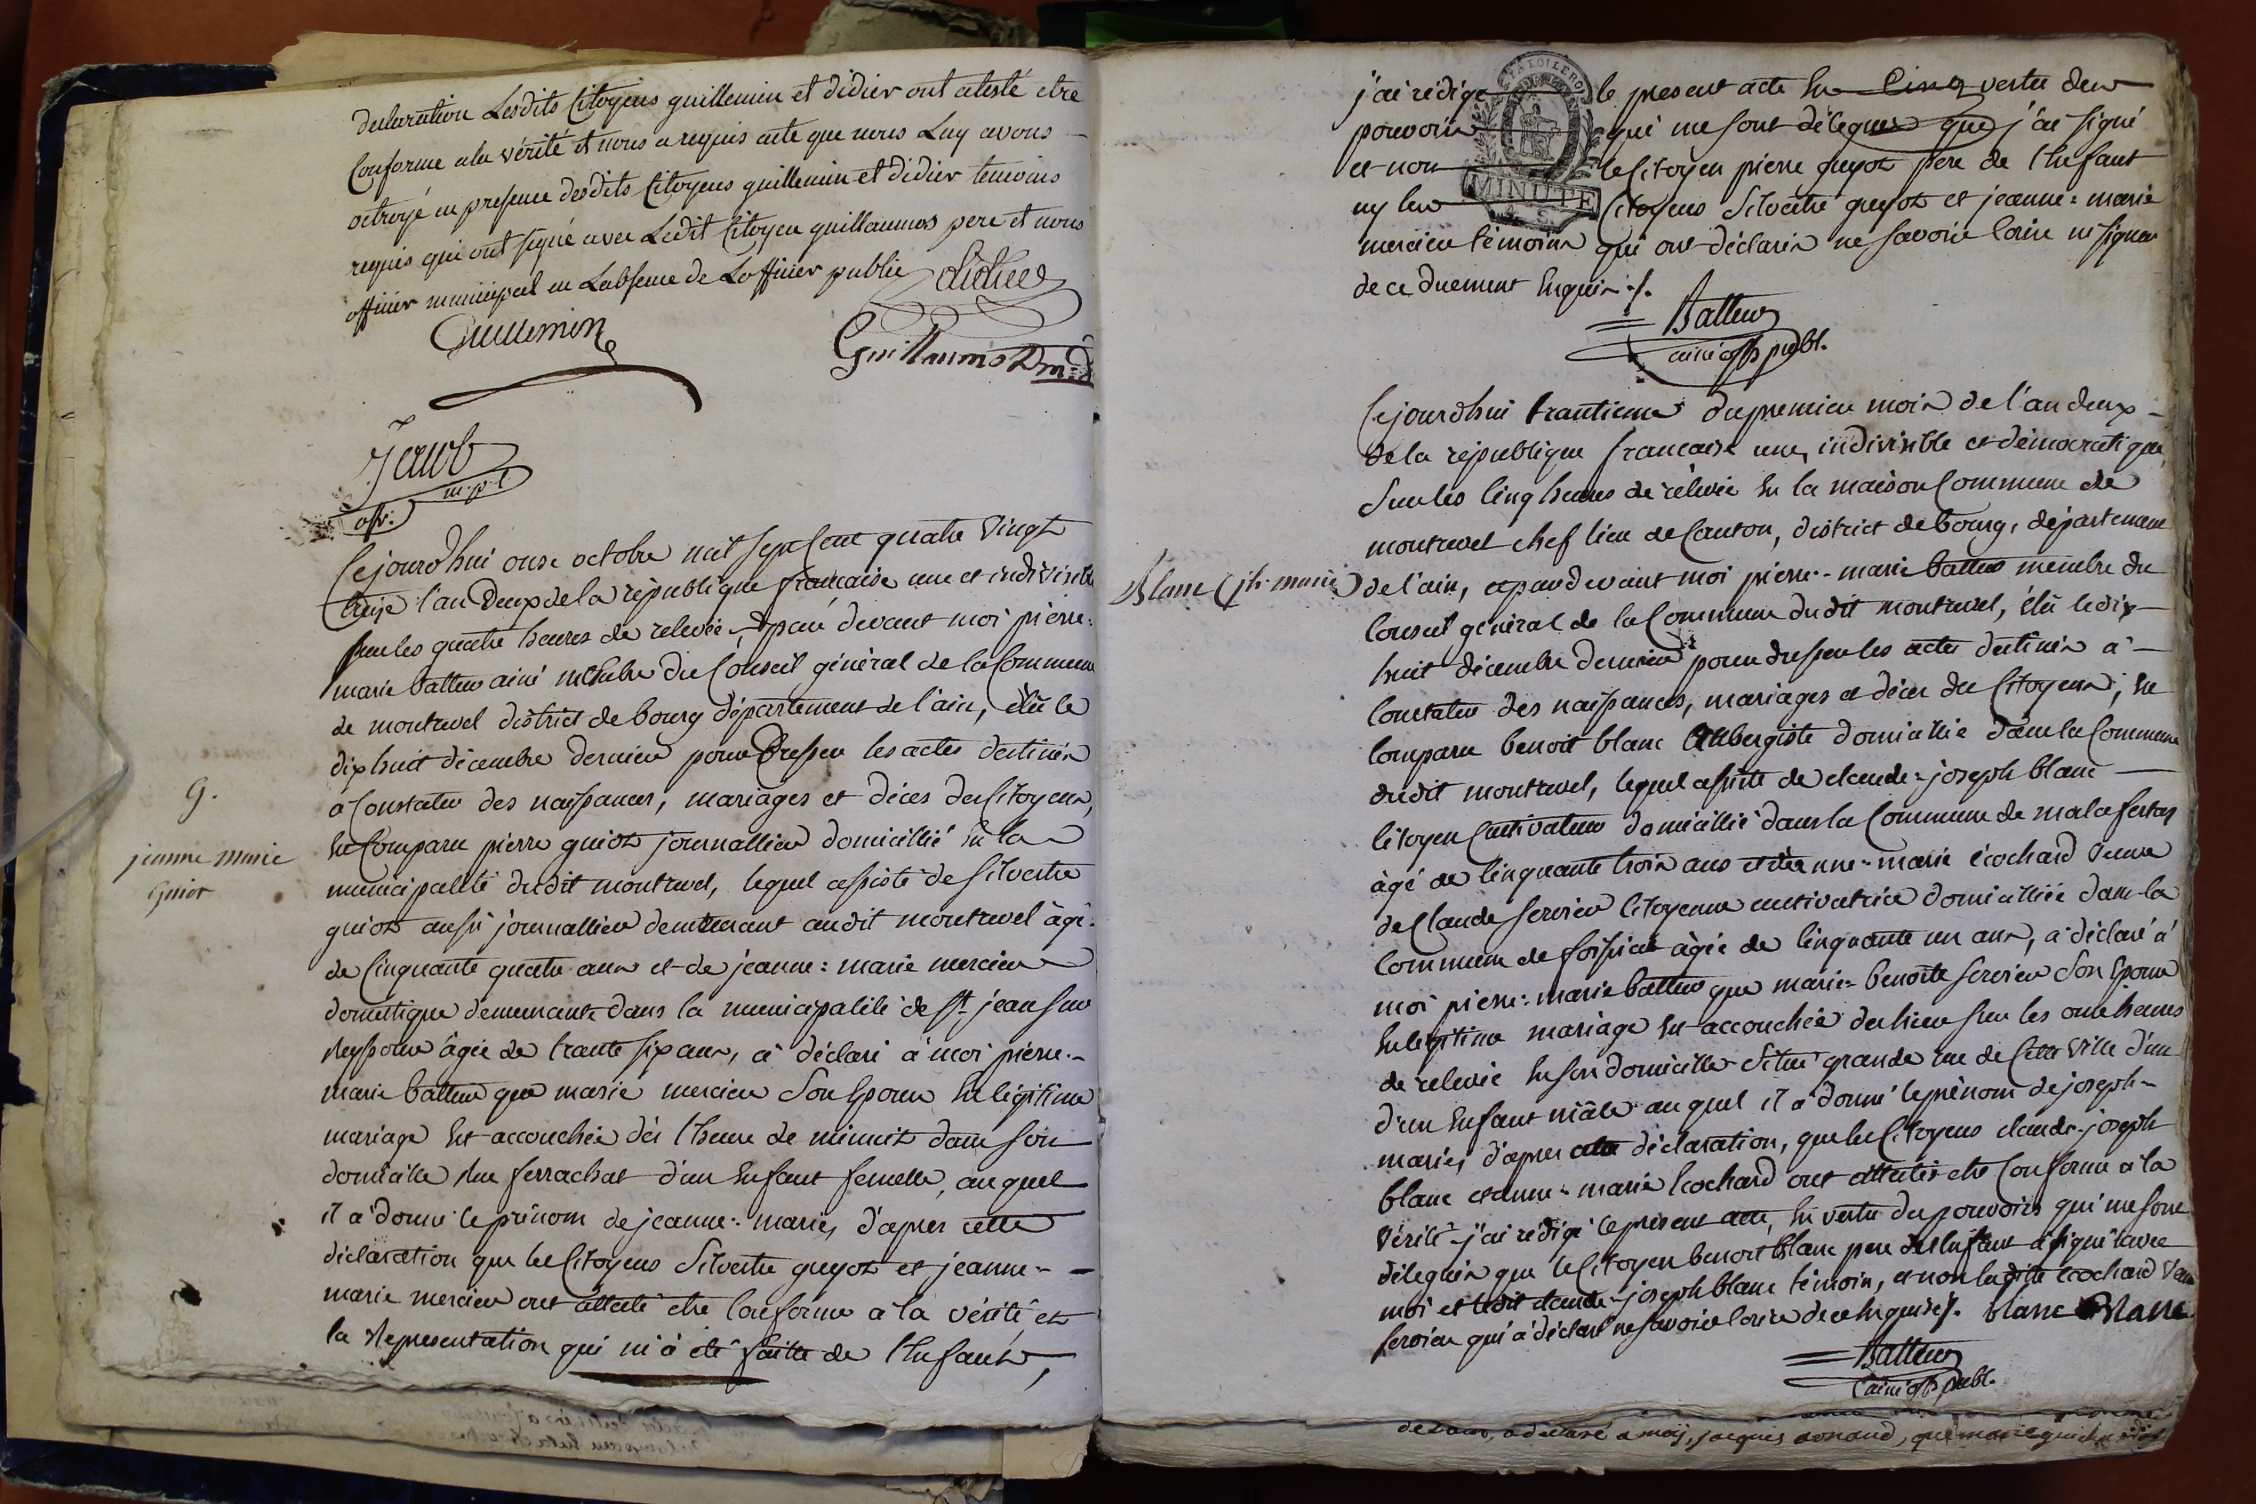 declaration Lesdits Citoyens guillemin et didier ont atesté etre
Conforme a la vérité et nous a requis acte que nous Luy avons
octroyé en presence desdits Citoyens guillemin et didier temoins
requis qui ont signé avec Ledit Citoyen guillaumos pere et nous
officier municipal en Labsence de Lofficier public didier
Guillemin
Guillaumos
Jacob
off: m.p.l
G.
jeanne marie
Guiot
Cejourd'hui onse octobre mil sept Cent quatre vingt
treize l'an Deux de la république francaise une et indivisible
sur les quatre heures de relevée, pardevant moi pierre-
marie batteur ainé membre du Conseil général de la Commune
de montrevel district de bourg département de l'ain, élû le
dix huit décembre dernier pour Dresser les actes destinés
à Constater des naissances, mariages et décès des Citoyens,
Est Comparu pierre guiot journallier domicillié En la
municipalité dudit montrevel, lequel assisté de Silvestre
guiot aussi journallier demeurant audit montrevel âgé
de Cinquante quatre ans et de jeanne : marie mercier
domestique demeurante dans la municipalité de St. jean sur
Reyssouse âgée de trante six ans, à déclaré à moi pierre-
marie batteur que marie mercier Son Epouse En légitime
mariage Est accouchée dès l'heure de minuit dans son
domicille Rue ferrachat d'un Enfant femelle, auquel
il a donné le prénom de jeanne : marie, d'après cette
déclaration que les Citoyens Silvestre guyot et jeanne-
marie mercier ont attesté etre Conforme a la vérité et
la Representation qui m'a été faitte de l'Enfant,
j'ai rédigé le present acte En vertu des
pouvoirs qui me sont délégués que j'ai signé
et non le Citoyen pierre guyot pere de l'Enfant
ny les Citoyens Silvestre guyot et jeanne : marie
mercier témoins qui ont déclarés ne savoir Ecrire ni signer
de ce duement Enquis ./.
MINUTE
Batteur
ainé off. publ.
Blanc (jh. marie)
Cejourd'hui trantieme du premier mois de l'an deux
de la république francaise une, indivisible et démocratique,
Sur les Cinq heures de relevée En la maison Commune de
montrevel chef lieu de Canton, district de bourg, département
de l'ain, pardevant moi pierre-marie batteur membre du
Conseil général de la Commune dudit montrevel, élû le dix
huit décembre dernier pour dresser les actes destinés à
Constater des naissances, mariages et décès des Citoyens, Est
Comparu benoit blanc Aubergiste domicillié dans la Commune
dudit montrevel, lequel assisté de claude-joseph blanc
Citoyen Cultivateur domicillié dans la Commune de malafertas
âgé de Cinquante trois ans et anne-marie écochard veuve
de Claude servier Citoyenne cultivatrice domicilliée dans la
Commune de foissiat âgée de Cinquante un ans, a déclaré à
moi pierre : marie batteur que marie-benoite servier Son Epouse
En légitime mariage Est accouchée du hier sur les onze heures
de relevée En son domicille Situé grande rue de Cette Ville d'un
d'un Enfant mâle auquel il a donné le prénom de joseph-
marie, d'après cette déclaration, que les Citoyens claude-joseph
blanc et anne-marie Ecochard ont attestés etre Conforme a la
Vérité j'ai rédigé le présent acte, En vertu des pouvoirs qui me sont
délégués que le Citoyen benoit blanc pere de l'Enfant a signé avec
moi et ledit claude-joseph blanc témoin, et non ladite écochard Veuve
servier qui a déclaré ne savoir Ecrire de ce Enquise ./. blanc Blanc
Batteur
l'ainé off. publ.
a déclaré a moy, jacques, que marie